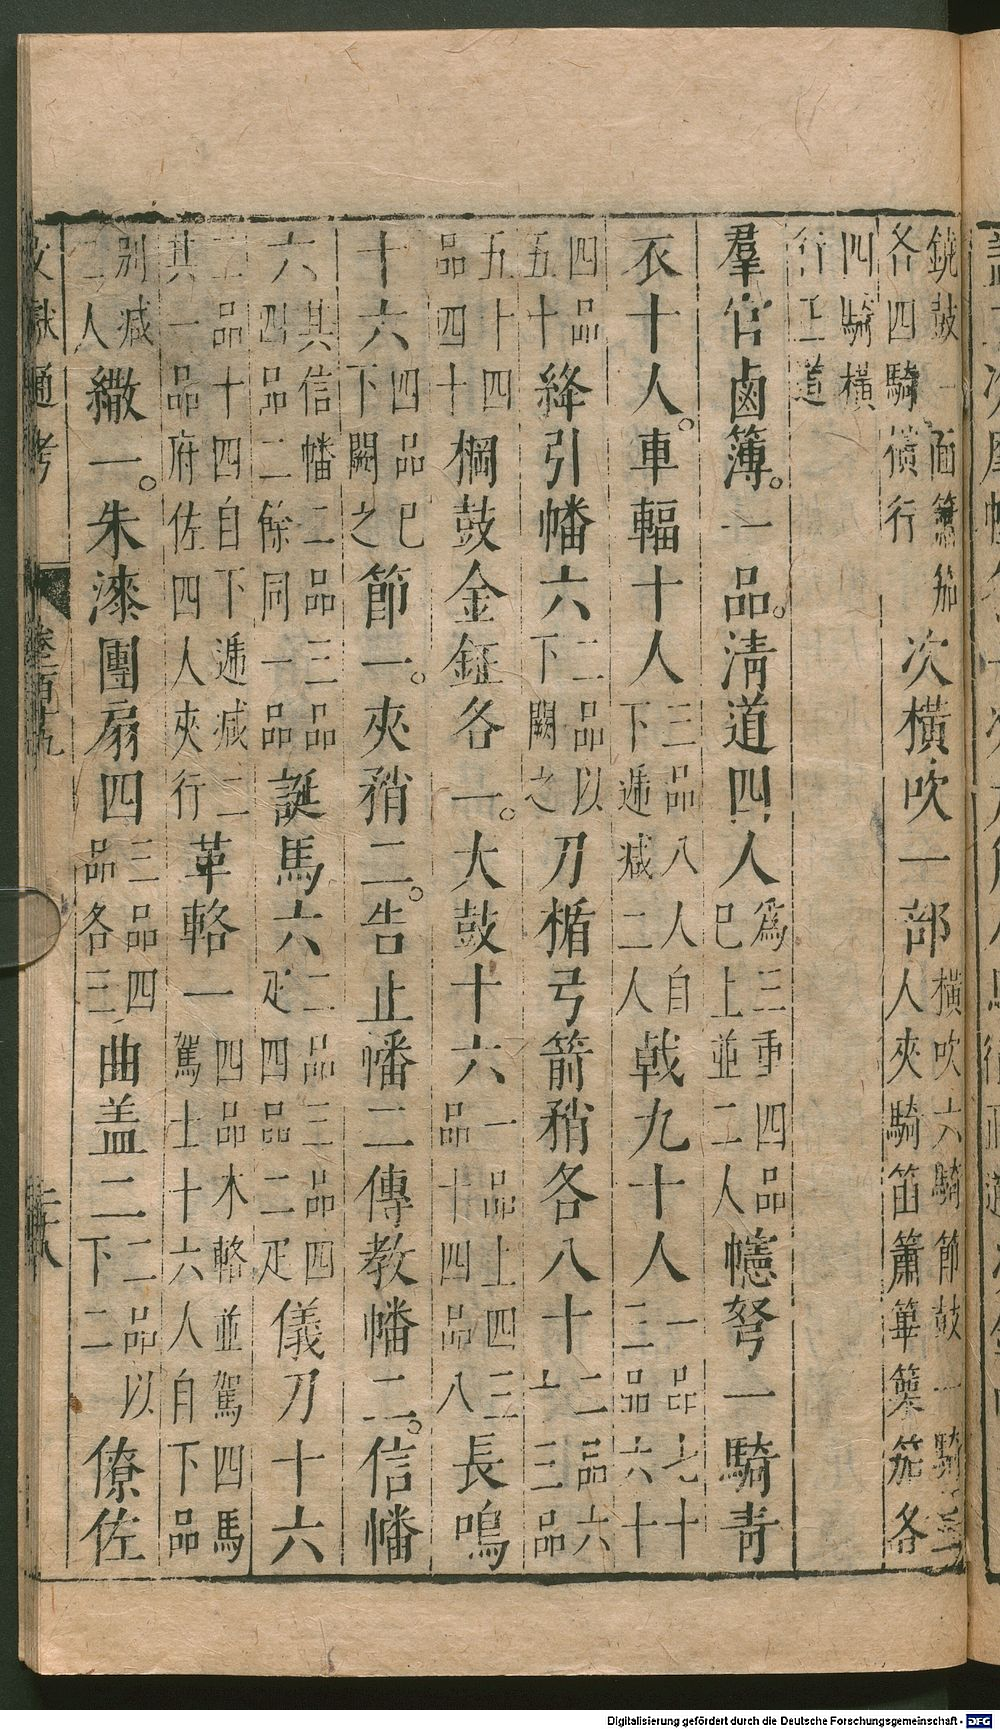 鐃鼓一面簫笳各四騎橫行次橫吹一部橫吹六騎節鼓一騎人夾騎笛簫篳篥笳各
四騎橫行正道
羣官鹵簿。一品。清道四人為三重四品已上並二人幰弩一騎青
衣十人。車輻十人三品八人自下遞減二人戟九十人一品七十二品六十
四品五十絳引幡六二品以下闕之刀楯弓箭矟各八十二品六十三品
五十四品四十棡鼓金鉦各一。大鼓十六一品上四三品十四四品八長鳴
十六四品已下闕之節一。夾矟二。告止幡二傳教幡二。信幡
六其信幡二品三品四品二餘同一品誕馬六二品三品四疋四品二疋儀刀十六
二品十四自下遞減二其一品府佐四人夾行革輅一四品木輅並駕四馬駕士十六人自下品
別減二人繖一。朱漆團扇四三品四品各三曲盖二二品以下二僚佐
文獻通考
卷百十九
二十八
Digitalisierung gefördert durch die Deutsche Forschungsgemeinschaft - DFG